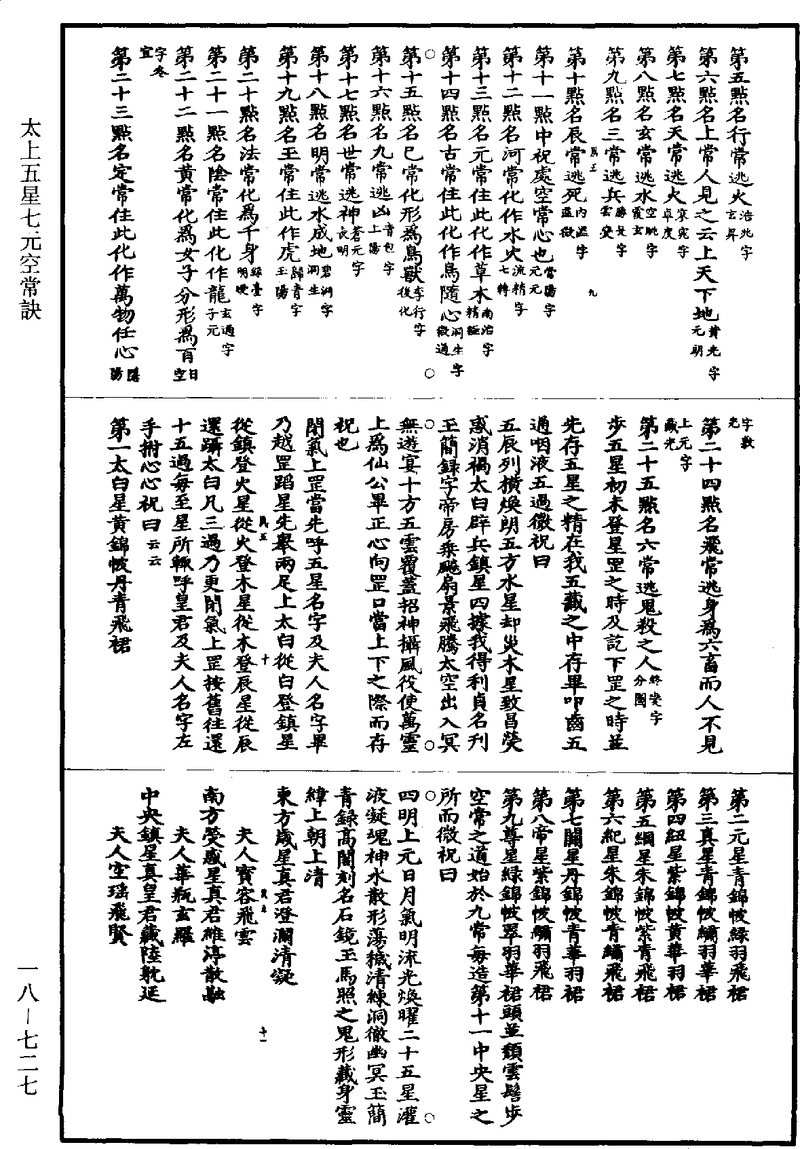 太上五星七元空常訣
一八—七二七
第五點名行常逃火浩兆字玄昇
第六點名上常人見之云上天下地黃光字元朝
第七點名天常逃火寥宛字卓度
第八點名玄常逃水空眺字霞玄
第九點名三常逃兵勝長字雲變
第十點名辰常逃死內溫字溫微
第十一點中祝處空常心也當陽字元元
第十二點名河常化作水火流精字七轉
第十三點名元常住此化作草木南治字精極
第十四點名古常住此化作鳥隨心洞生字微道
第十五點名巳常化形為鳥獸李行字後化
第十六點名九常逃凶首包字上陽
第十七點名世常逃神蒼元字長明
第十八點名明常逃水成地碧洞字洞生
第十九點名王常住此作虎歸青字玉陽
第二十點名法常化為千身綠臺字明曖
第二十一點名陰常住此化作龍玄通字子元
第二十二點名黃常化為女子分形為百日空
字冬宜
第二十三點名定常住此化作萬物任心隱陽
字敷光
第二十四點名飛常逃身為六畜而人不見
上元字藏光
第二十五點名六常逃鬼殺之人終變字分閣
步五星初未登星罡之時及訖下罡之時並
先存五星之精在我五藏之中存畢叩齒五
通咽液五過微祝曰
五辰列橫煥朗五方水星却災木星致昌熒
惑消禍太白辟兵鎮星四據我得利貞名刊
玉簡錄字帝房乘飇扇景飛騰太空出入冥
無遊宴十方五雲覆蓋招神攝風役使萬靈
上為仙公畢正心向罡口當上下之際而存
祝也
閉氣上罡當先呼五星名字及夫人名字畢
乃越罡蹈星先舉兩足上太白從白登鎮星
從鎮登火星從火登木星從木登辰星從辰
還躡太白凡三過乃更閉氣上罡按舊往還
十五過每至星所輒呼皇君及夫人名字左
手拊心心祝曰云云
第一太白星黃錦帔丹青飛裙
第二元星青錦帔綠羽飛裙
第三真星青錦帔繡羽華裙
第四紐星紫錦帔黃華羽裙
第五綱星朱錦帔紫青飛裙
第六紀星朱錦帔青繡飛裙
第七關星丹錦帔青華羽裙
第八帝星紫錦帔繡羽飛裙
第九尊星綠錦帔翠羽華裙頭並頹雲髻步
空常之道始於九常每造第十一中央星之
所而微祝曰
四明上元日月氣明流光煥曜二十五星灌
液凝魂神水散形蕩穢清練洞徹幽冥玉簡
青錄高閣刻名石鏡玉馬照之鬼形藏身靈
緯上朝上清
東方歲星真君澄瀾清凝
夫人寶容飛雲
南方熒惑星真君維淳散融
夫人華瓶玄羅
中央鎮星真皇君藏陸躭延
夫人空瑤飛賢